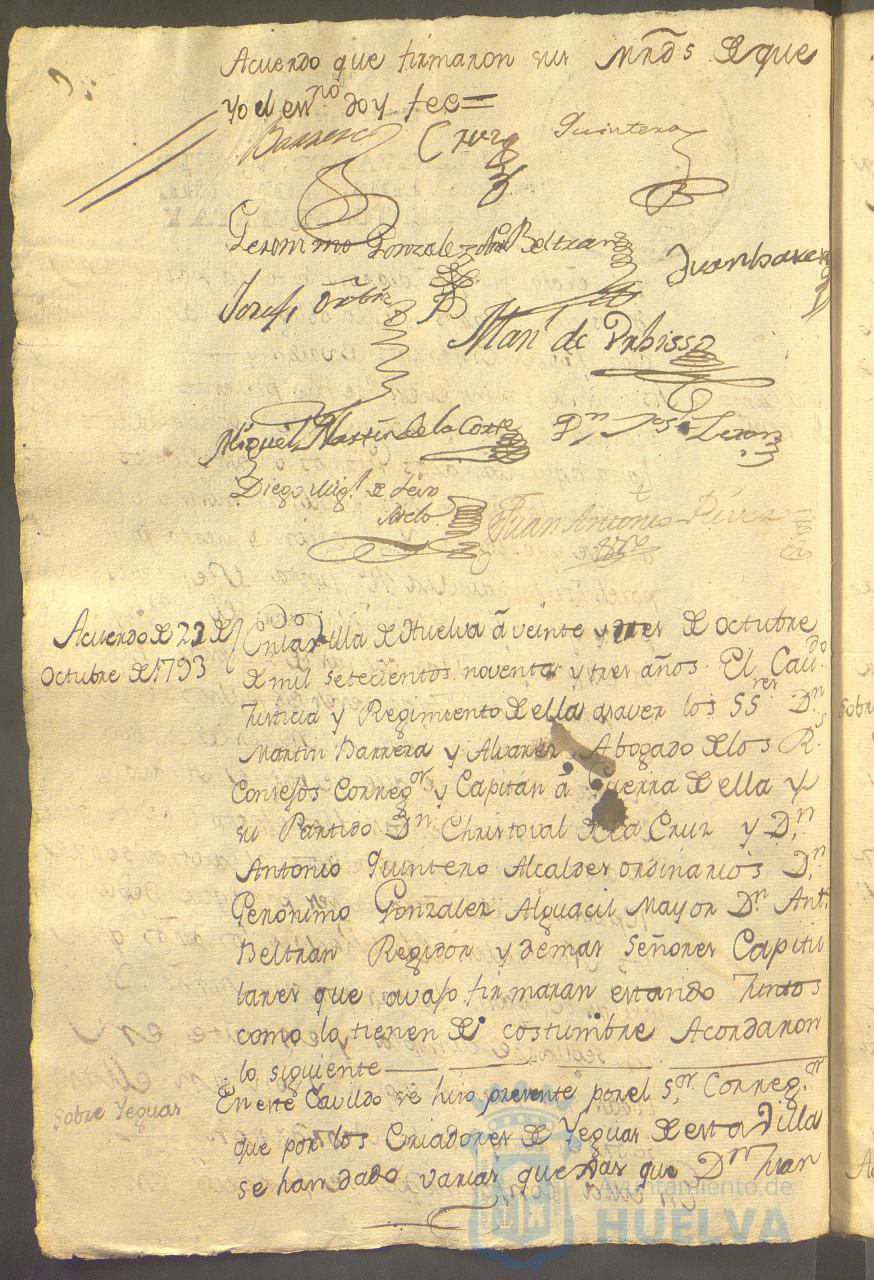 Acuerdo que firmaron sus Mrds de que
yo el essno doy fee=
Barrera Cruz Quintero
Geronimo Gonzalez Anto Beltran
Juan
Josef Ortiz
Man de
Miguel Martin de la Corte Dn Josf
Diego Migl de
Juan Antonio Rivera
Acuerdo de 23 de
Octubre de 1793
En la Villa de Huelva â veinte y tres de octubre
de mil setecientos noventa y tres años. El Cavdo
Justicia y Regimiento de ella asaver los SSres Dn
Martin Barrera y Alvarez Abogado de los Rs
Consejos Corregor y Capitan â Guerra de ella y
su Partido Dn Christoval de la Cruz y Dn
Antonio Quintero Alcaldes ordinarios Dn
Geronimo Gonzalez Alguacil Mayor Dn Anto
Beltran Regidor y demas Señores Capitu
lares que avajo firmaran estando Juntos
como lo tienen de costumbre Acordaron
lo siguiente
Sobre Yeguas
En este Cavildo se hizo presente por el Sor Corregor
que por los Criadores de Yeguas de esta Villa
se han dado varias quexas que Dn Juan
Ayuntamiento de
HUELVA